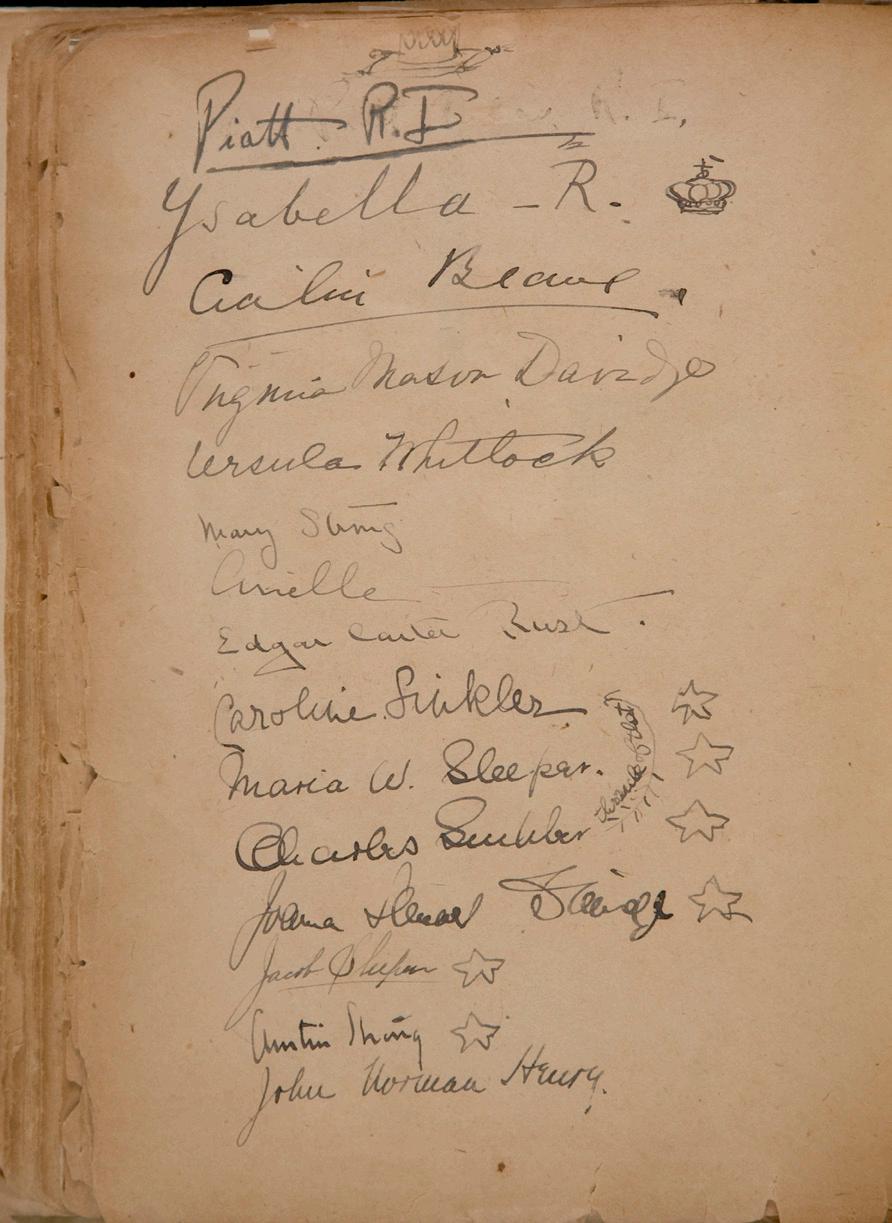 Piatt R.I
Ysabella - R.
Cecilia Beaux.
Virginia Mason Davidge
Ursula Whitlock
Mary Strong
Edgar Carter Rust.
Caroline Sinkler
Maria W. Sleeper.
Charles Sinkler
Joanna Davidge
Jacob Sleeper
Austin Strong
John Norman Henry.